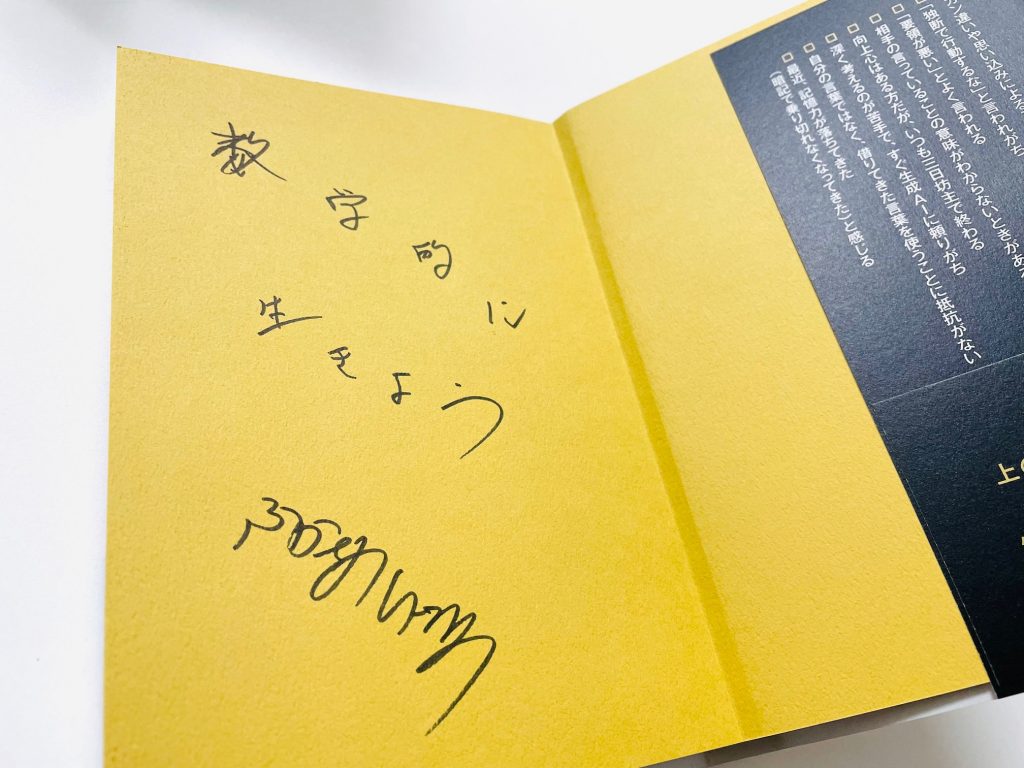 数学的に
生きよう
ン違いや思い込みによる
「独断で行動するな」と言われがち
□「要領が悪い」とよく言われる
□相手の言っていることの意味がわからないときがある
□向上心はある方だが、いつも三日坊主で終わる
□深く考えるのが苦手で、すぐ生成AIに頼りがち
□自分の言葉ではなく、借りてきた言葉を使うことに抵抗がない
□最近、記憶力が落ちてきた
(暗記で乗り切れなくなってきた)と感じる
上の